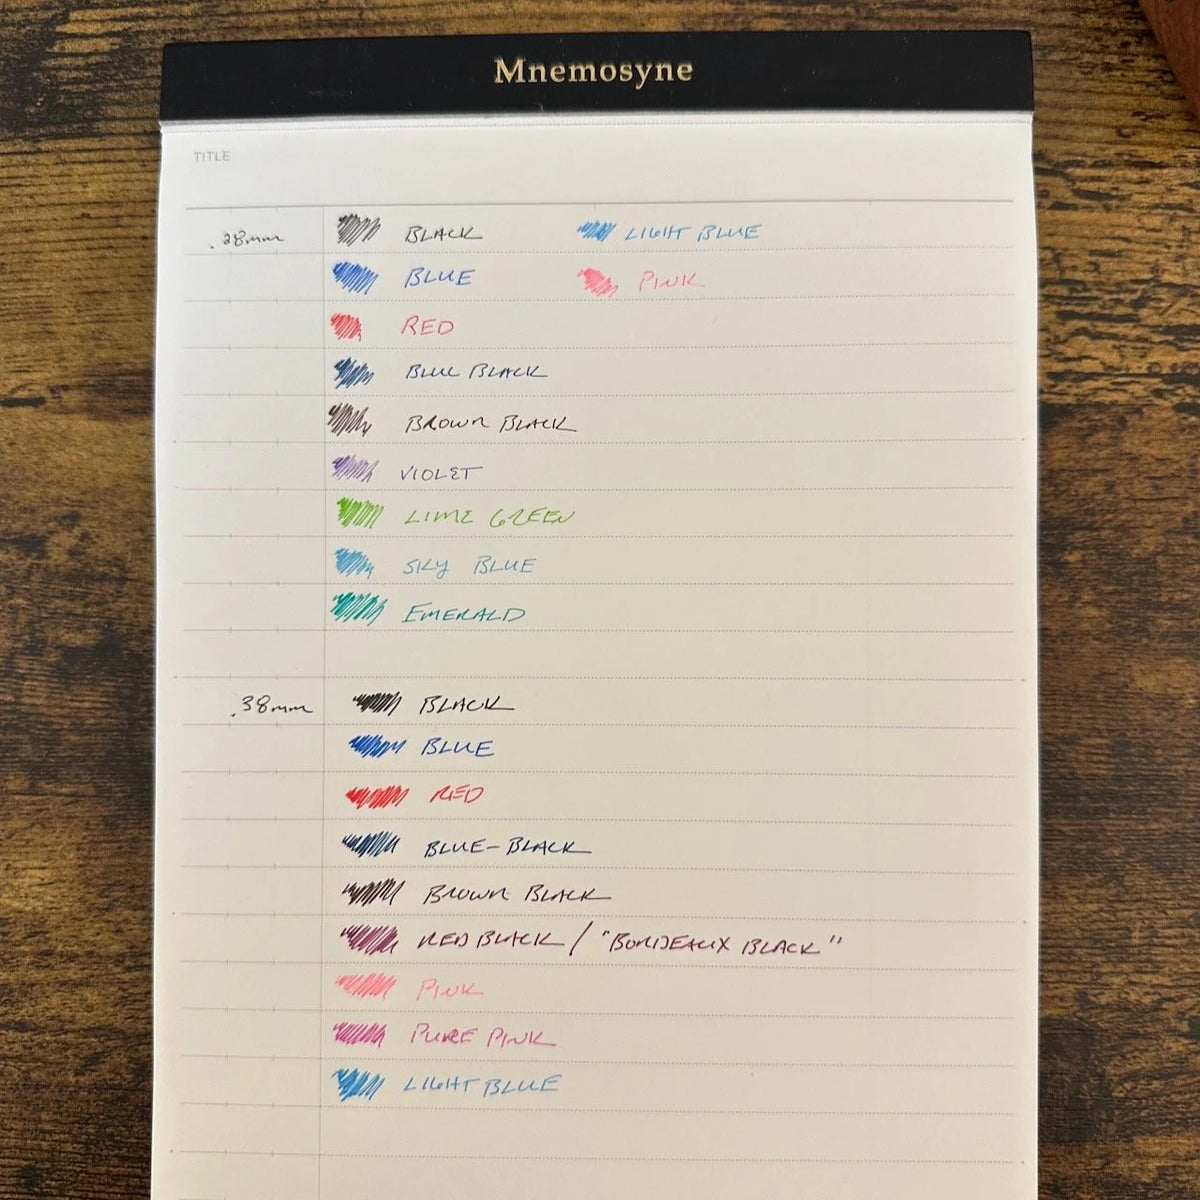 Mnemosyne
TITLE
.28mm BLACK LIGHT BLUE
BLUE PINK
RED
BLUE BLACK
BROWN BLACK
VIOLET
LIME GREEN
SKY BLUE
EMERALD
.38mm BLACK
BLUE
RED
BLUE-BLACK
BROWN BLACK
RED BLACK / "BORDEAUX BLACK"
PINK
PURE PINK
LIGHT BLUE